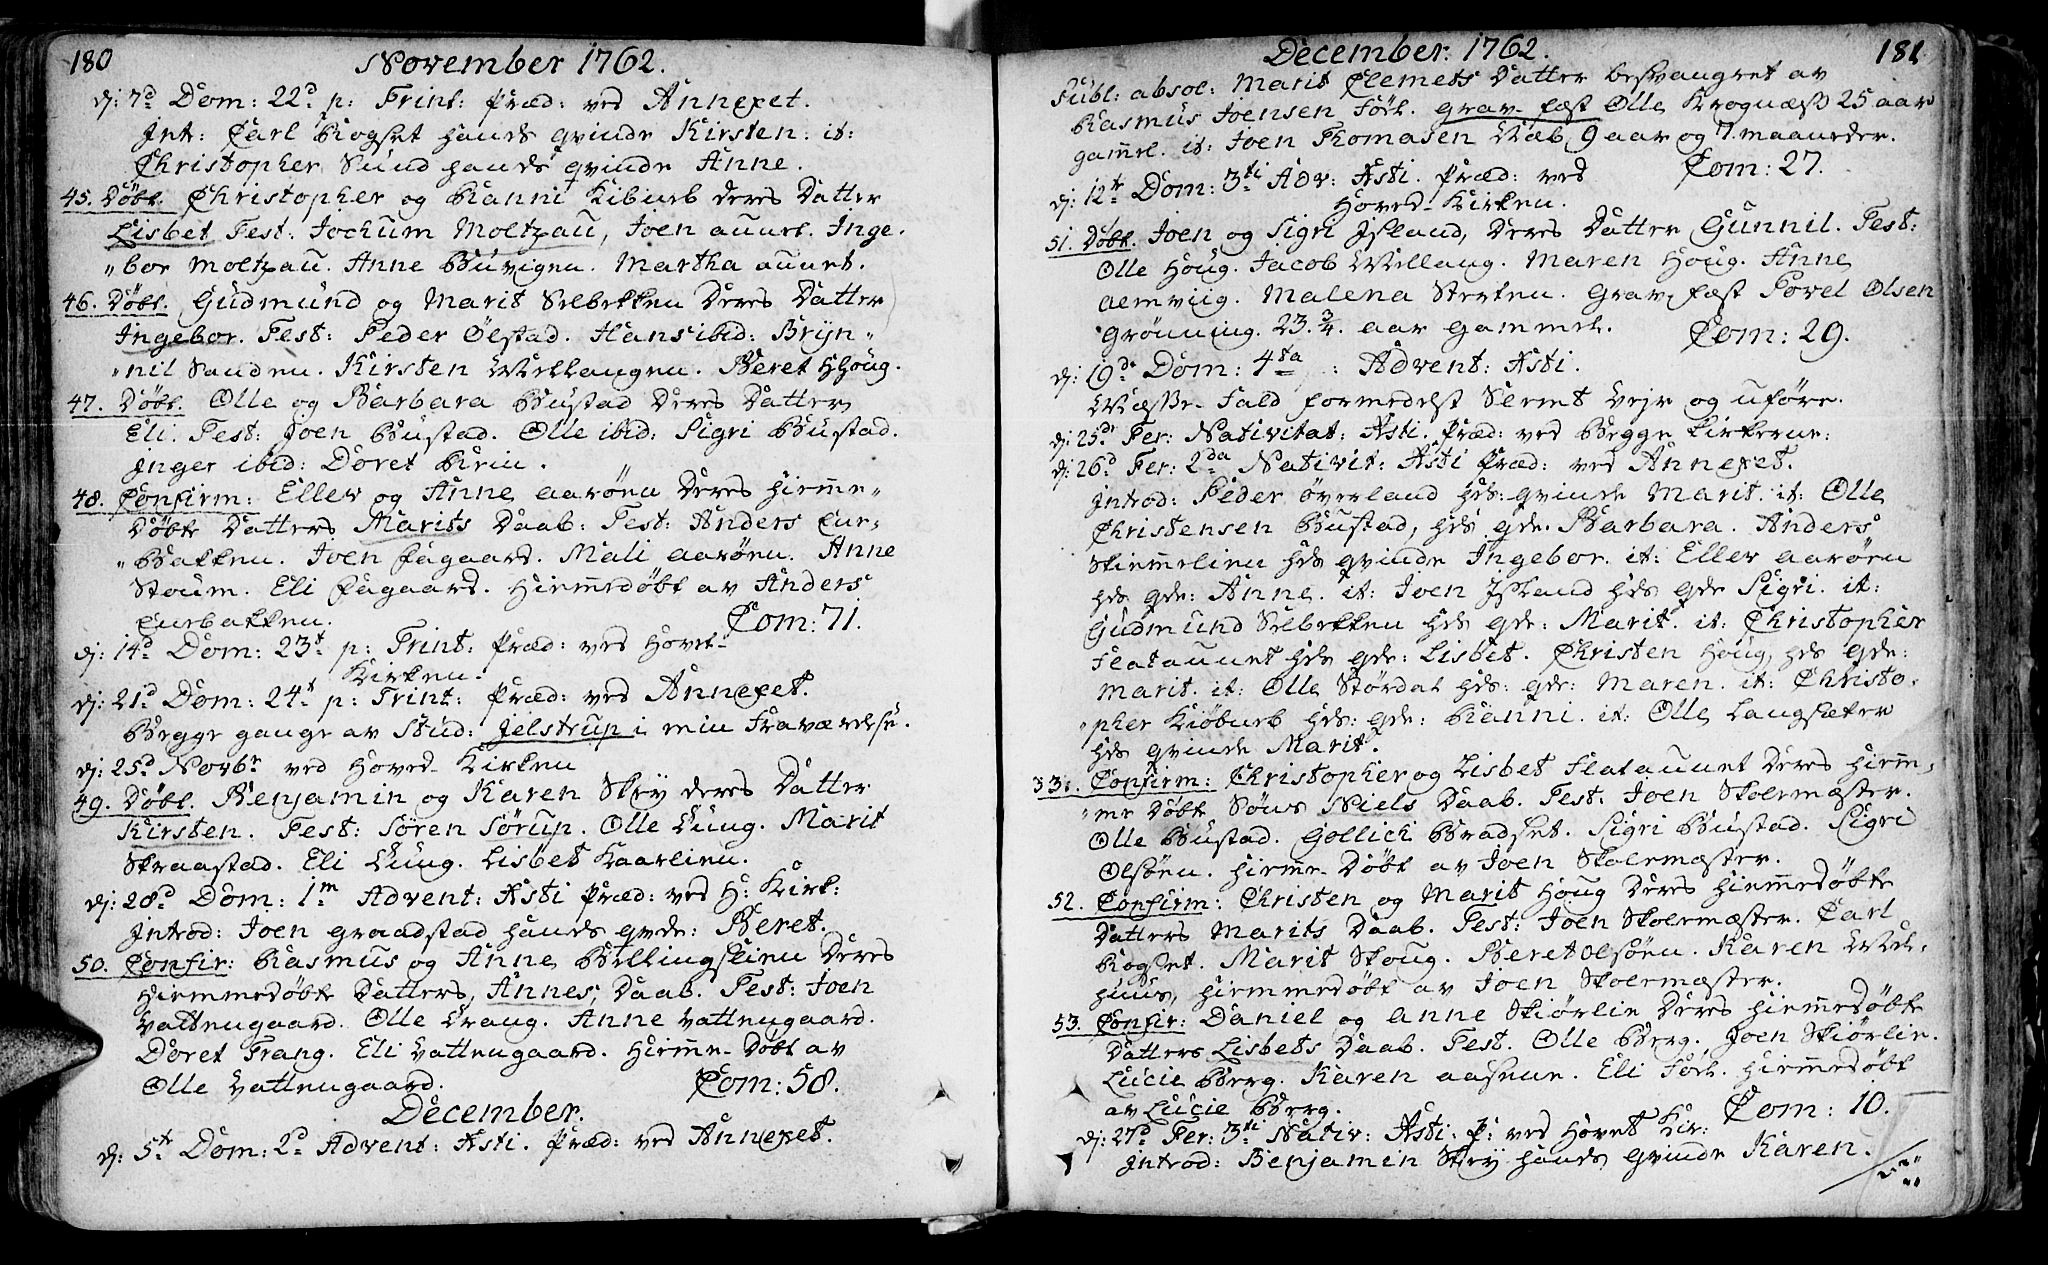 180
November 1762.
dj: 7d Dom: 22d p: Trint: Præd: ved Annexet.
Int: Carl Rogset hands qvinde Kirsten. it:
Christopher Sund hands qvinde Anne.
45. Döbt. Christopher og Ranni Kibueb deres Datter
Lisbet Test: Jochum Moltzau, Joen aunet. Inge-
"bor Moltzau. Anne Buvigen. Martha aunet.
46. Döbt. Gudmund og Marit Selbekken Deres Datter
Ingebor. Test: Peder Ölstad. Hans ibid: Bryn"
"nil Sanden. Kirsten Willangen. Beret Houg.
47. Döbt. Olle og Barbara Bustad Deres Datter
Eli. Test: Joen Bustad. Olle ibid: Sigri Bustad.
Inger ibid: Doret Krin.
48. Confirm: Ellev og Anne aaröen Deres hiemme"
Döbte Datters Marits Daab: Test: Anders Eur-
"Bakken. Joen Fagaard. Mali aaröen. Anne
Stoum. Eli Fagaard. Hiemmedöbt av Anders
Eurbakken. Com: 71.
dj: 14d Dom: 23t p: Trint: Præd: ved Hovet-
Kirken.
dj: 21d Dom: 24t p: Trint: Præd: ved Annexet.
Begge gange av Stud: Jelstrup i min Fraværelse.
dj: 25d Novbr ved Hoved-Kirken
49. Döbt. Benjamin og Karen Skey deres Datter
Kirsten. Test: Sören Sörup. Olle Lung. Marit
Skraastad. Eli Lung. Lisbet Kaarlien.
dj: 28d Dom: 1m Advent: Xsti Præd: ved H: Kirk:
Introd: Joen graadstad hands qvde: Beret.
50. Confir: Rasmus og Anne Bellingslien Deres
Hiemmedöbte Datters, Annes, Daab. Test: Joen
Vattengaard. Olle Trang. Anne Vattengaard.
Doret Trang. Eli Vattengaard. Hiemme-Döbt av
Olle Vattengaard. Com: 58.
December.
dj: 5t Dom: 2d Advent: Xsti. Præd: ved Annexet.
December: 1762.
181
Publ: absol: Marit Clemets Datter besvangret av
Rasmus Joensen Förl. Grav-fæst Olle Krognæss 25 aar
gaml. it: Joen Thomasen Wab 9 aar og 7. maaneder.
dj: 12te Dom: 3tii Adv: Xsti. Præd: ved Com: 27.
Hoved-Kirken.
51. Döbt. Joen og Sigri Island, Deres Datter Gunnil. Test:
Olle Houg. Jacob Willang. Maren Houg. Anne
aemviig. Malena Sterken. Grav-fæst Povel Olsen
Grönning. 23. 3/4. aar Gammel. Com: 29.
dj: 19de Dom: 4ta : Advent: Xsti.
Messe-Fald formedelst Slemt Vejr og uföre.
dj: 25de Fer: Nativitat: Xsti. Præd: ved Begge kirkerne:
dj: 26d Fer: 2da Nativit: Xsti Præd: ved Annexet.
Introd: Peder överland hds: qvinde Marit. it: Olle
Christensen Bustad, hds qde. Barbara. Anders
Skiemelien hds qvinde Ingebor. it: Ellev aaröen
hds qde: Anne. it: Joen Island hds qde Sigri. it:
Gudmund Selbekken hds qde: Marit. it: Christopher
Flataunet hds qde: Lisbet. Christen Houg, hds qde:
Marit. it: Olle Stördal hds: qde: Maren. it: Christo-
"pher Kiöbueb hds: qde: Ranni. it: Olle Langsæter
hds qvinde Marit.
33. Confirm: Christopher og Lisbet Flataunet Deres hiem-
"me Döbte Söns Niels Daab. Test: Joen Skolemæster.
Olle Bustad. Gollich Bradset. Sigri Bustad. Sigri
Olsöen. hieme-Döbt av Joen Skolemæster.
52. Confirm: Christen og Marit Houg Deres hiemmedöbte
Datters Marits Daab. Test: Joen Skolemæster. Carl
Rogset. Marit Skoug. Beret Olsöen. Karen Wul-
huus, hiemmedöbt av Joen Skolemæster.
53. Confir: Daniel og Anne Skiörlie Deres hiemmedöbte
Datters Lisbets Daab. Test. Olle Berg. Joen Skiörlie.
Lucie Berg. Karen aasene. Eli Förl. Hiemmedöbt
av Lucie Berg. Com: 10.
dj: 27d Fer: 3tii Nativ: Xsti: P: ved Hovet Kir:
Introd: Benjamin Skey hands Qvinde Karen.